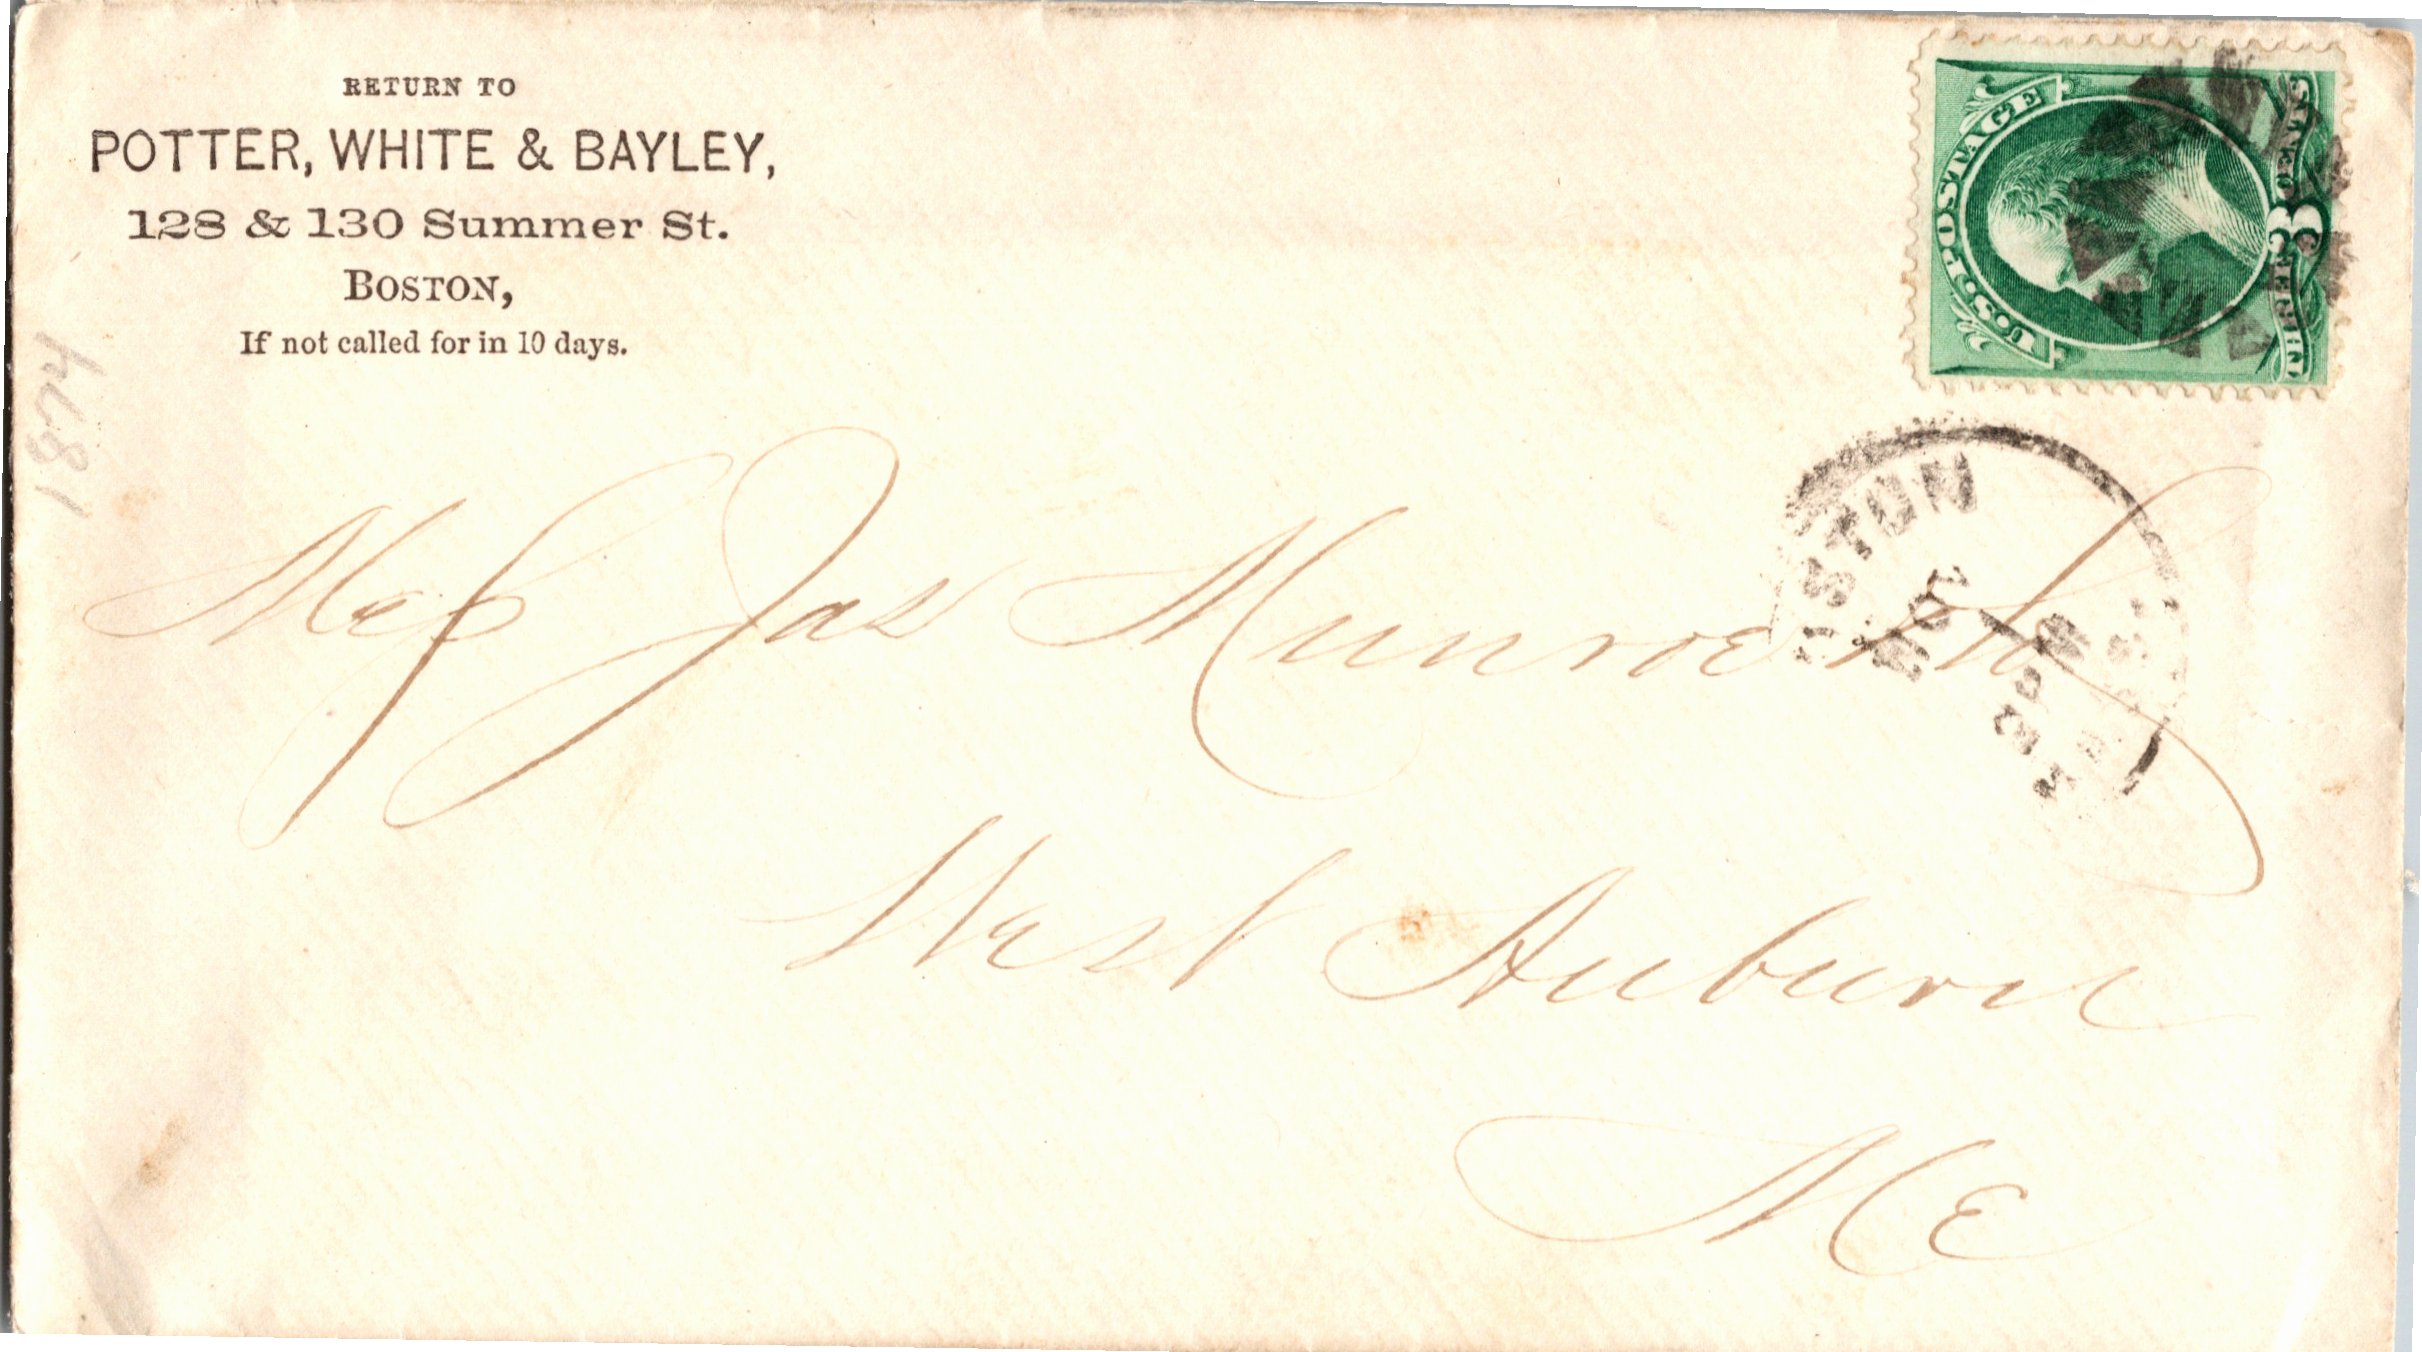 RETURN TO
POTTER, WHITE & BAYLEY,
128 & 130 Summer St.
BOSTON,
If not called for in 10 days.
1874
U.S. POSTAGE
THREE 3 CENTS
STON
NOV
10
Jas Munroe
West Auburn
ME